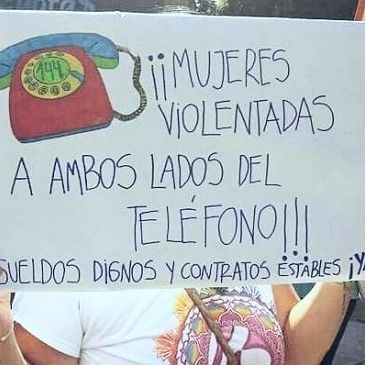 144
¡¡MUJERES
VIOLENTADAS
A AMBOS LADOS DEL
TELÉFONO!!!
SUELDOS DIGNOS Y CONTRATOS ESTABLES ¡YA